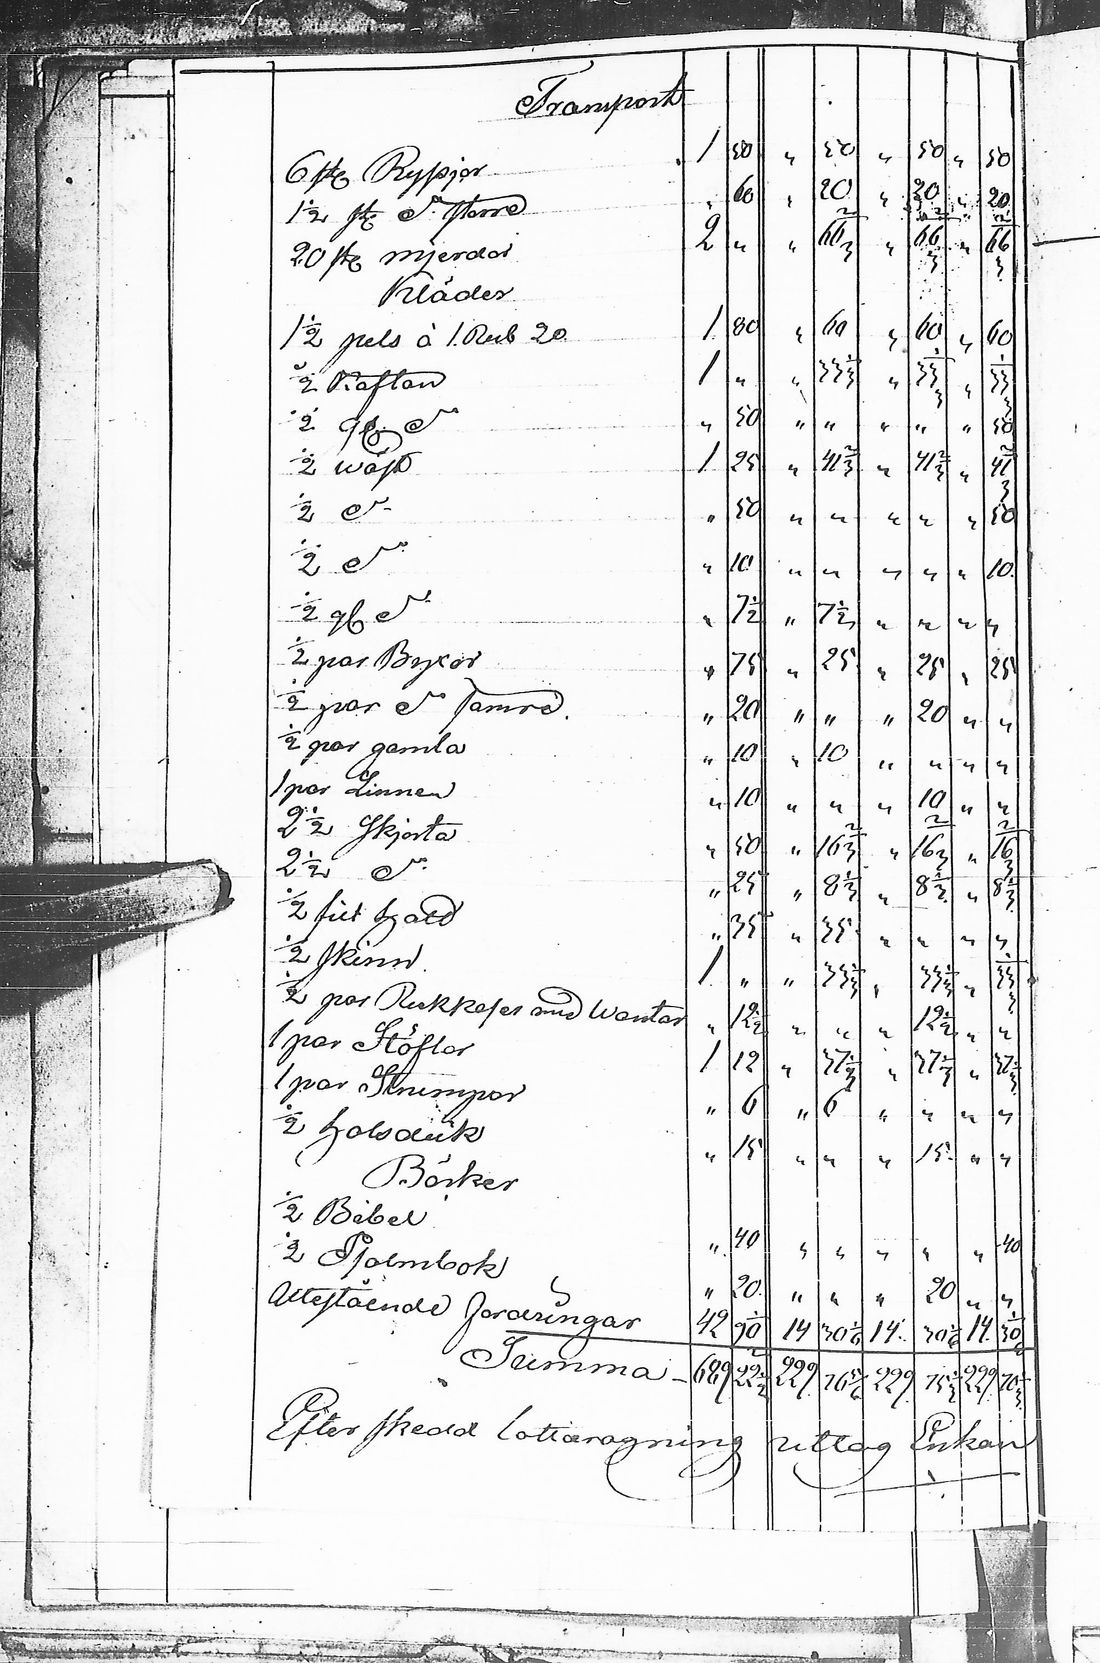 Transport
6 st Ryssjor 1 50 " 50 " 50 " 50
1/2 st d:o större " 60 " 20 " 20 " 20
20 st mjerdar 2 " " 66 2/3 " 66 2/3 " 66 2/3
Kläder
1 1/2 pels à 1 Rub 20 1 80 " 60 " 60 " 60
1/2 Kaftan 1 " " 33 1/3 " 33 1/3 " 33 1/3
1/2 gl d:o " 50 " " " " " 50
1/2 wäst 1 25 " 41 2/3 " 41 2/3 " 41 2/3
1/2 d:o " 50 " " " " " 50
1/2 d:o " 10 " " " " " 10
1/2 gl d:o " 7 1/2 " 7 1/2 " " " "
1/2 par Byxor " 75 " 25 " 25 " 25
1/2 par d:o sämre " 20 " " " 20 " "
1/2 par gamla " 10 " 10 " " " "
1 par Linnen " 10 " " " 10 " "
2 1/2 skjorta " 50 " 16 2/3 " 16 2/3 " 16 2/3
2 1/2 d:o " 25 " 8 1/3 " 8 1/3 " 8 1/3
1/2 " 35 " 35 " " " "
1/2 skinn 1 " " 33 1/3 " 33 1/3 " 33 1/3
1/2 par med Wantar " 12 1/2 " " " 12 1/2 " "
1 par Stöflor 1 12 " 37 1/3 " 37 1/3 " 37 1/3
1 par Strumpor " 6 " 6 " " " "
1/2 halsduk " 15 " " " 15 " "
Böcker
1/2 Bibel " 40 " " " " " 40
1/2 Psalmbok " 20 " " " 20 " "
Utestående fordringar 42 90 1/2 14 30 1/6 14 30 1/6 14 30 1/6
Summa 689 22 1/2 229 229 229
Efter skedd lottdragning uttog Enkan